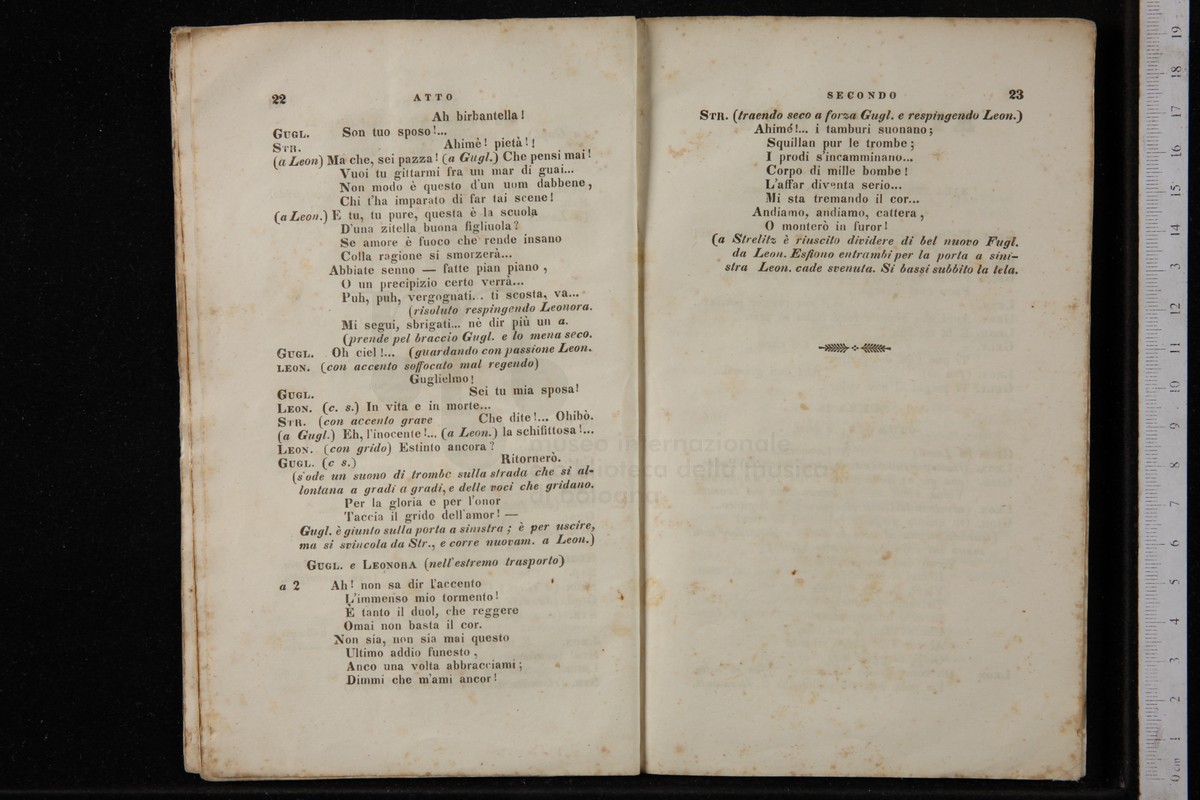 22
ATTO
Ah birbantella!
GUGL. Son tuo sposo!...
STR. Ahimè! pietà!!
(a Leon) Ma che, sei pazza! (a Gugl.) Che pensi mai!
Vuoi tu gittarmi fra un mar di guai...
Non modo è questo d'un uom dabbene,
Chi t'ha imparato di far tai scene!
(a Leon.) E tu, tu pure, questa è la scuola
D'una zitella buona figliuola?
Se amore è fuoco che rende insano
Colla ragione si smorzerà...
Abbiate senno — fatte pian piano,
O un precipizio certo verrà...
Puh, puh, vergognati.. ti scosta, va...
(risoluto respingendo Leonora.
Mi segui, sbrigati... nè dir più un a.
(prende pel braccio Gugl. e lo mena seco.
GUGL. Oh ciel!... (guardando con passione Leon.
LEON. (con accento soffocato mal regendo)
Guglielmo!
GUGL. Sei tu mia sposa!
LEON. (c. s.) In vita e in morte...
STR. (con accento grave Che dite!... Ohibò.
(a Gugl.) Eh, l'inocente!... (a Leon.) la schifittosa!...
LEON. (con grido) Estinto ancora?
GUGL. (c s.) Ritornerò.
(s'ode un suono di trombe sulla strada che si al-
lontana a gradi a gradi, e delle voci che gridano.
Per la gloria e per l'onor
Taccia il grido dell'amor! —
Gugl. è giunto sulla porta a sinistra; è per uscire,
ma si svincola da Str., e corre nuovam. a Leon.)
GUGL. e LEONORA (nell'estremo trasporto)
a 2 Ah! non sa dir l'accento
L'immenso mio tormento!
È tanto il duol, che reggere
Omai non basta il cor.
Non sia, non sia mai questo
Ultimo addio funesto,
Anco una volta abbracciami;
Dimmi che m'ami ancor!
SECONDO
23
STR. (traendo seco a forza Gugl. e respingendo Leon.)
Ahimé!... i tamburi suonano;
Squillan pur le trombe;
I prodi s'incamminano...
Corpo di mille bombe!
L'affar diventa serio...
Mi sta tremando il cor...
Andiamo, andiamo, cattera,
O monterò in furor!
(a Strelitz è riuscito dividere di bel nuovo Fugl.
da Leon. Esfiono entrambi per la porta a sini-
stra Leon. cade svenuta. Si bassi subbito la tela.
museo internazionale
biblioteca della musica
di bologna
0 cm 1 2 3 4 5 6 7 8 9 10 11 12 13 14 15 16 17 18 19